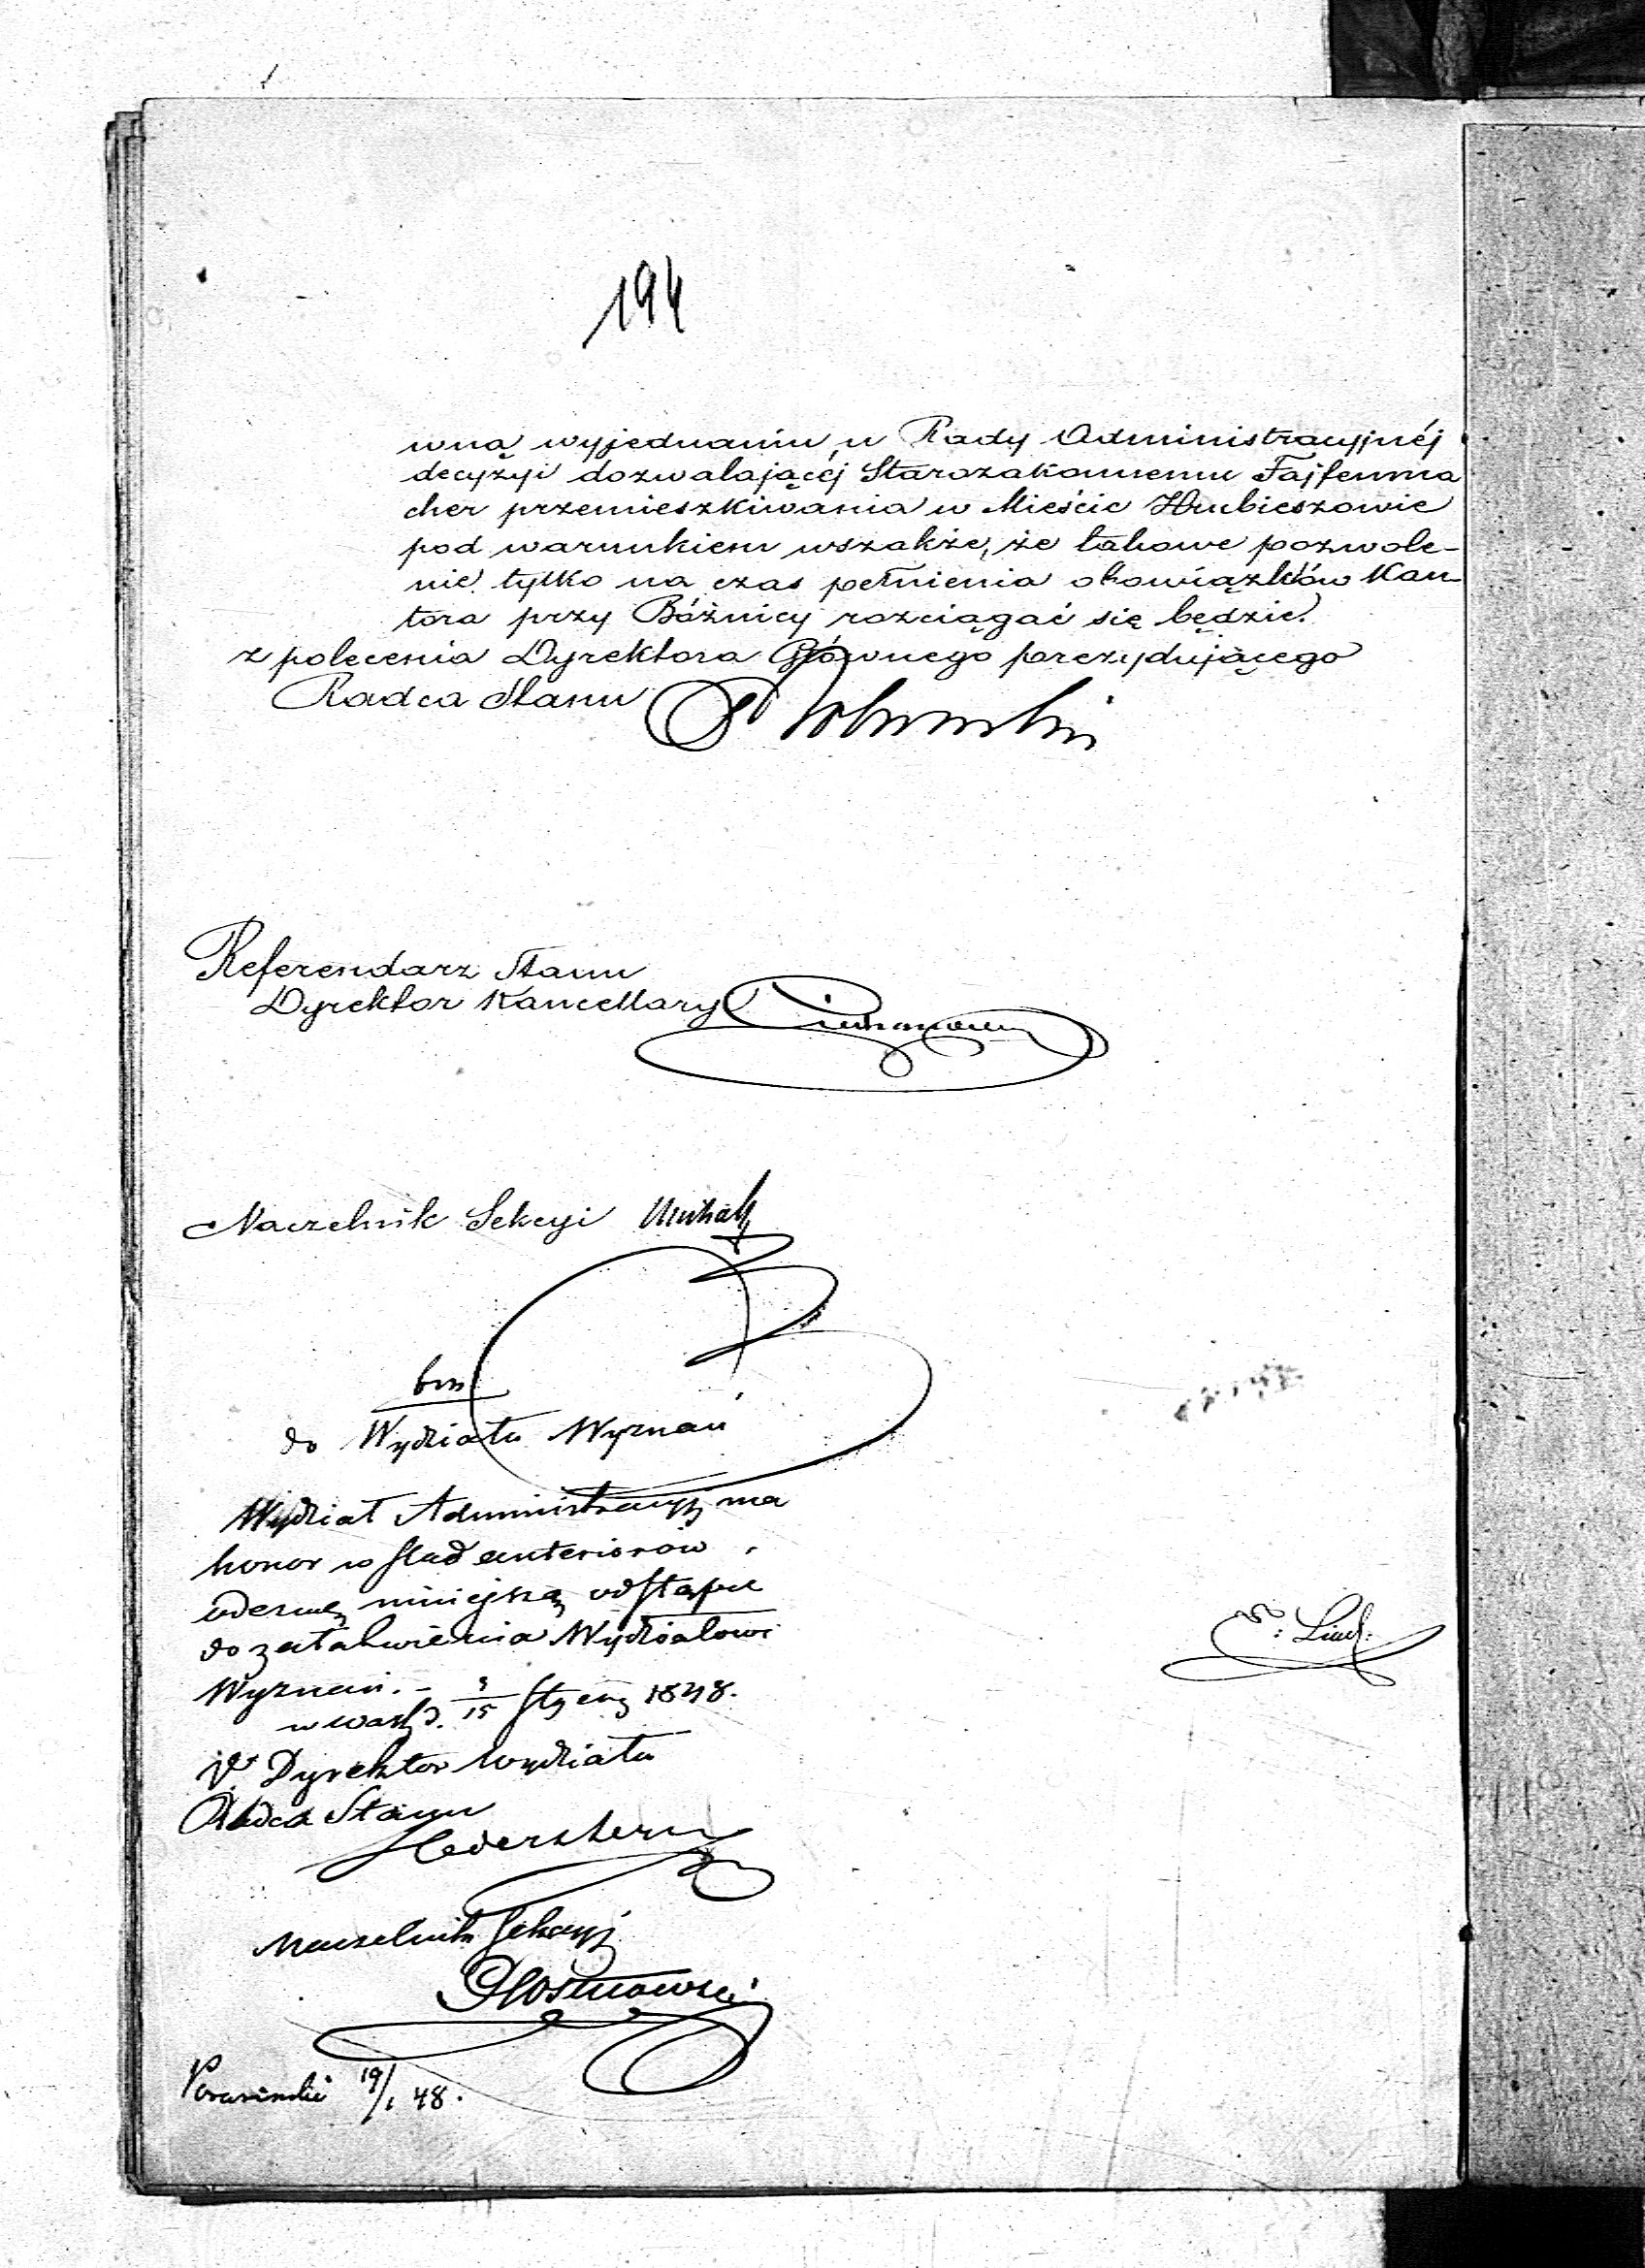 194
wną wyjednaniu u Rady Administracyjnéj
decyzyi dozwalającéj Starozakonnemu Fajfenma
cher przemieszkiwania w Mieście Hrubieszowie
pod warunkiem wszakże, że takowe pozwole-
nie tylko na czas pełnienia obowiązków Kan-
tora przy Bóżnicy rozciągać się będzie.
z polecenia Dyrektora Głównego prezydującego
Radca Stanu
Referendarz Stanu
Dyrektor Kancellaryi
Naczelnik Sekcyi
bm
do Wydziału Wyznań
Wydział Administracyj ma
honor w ślad anteriorów
odezwę niniejszą odstąpić
do załatwienia Wydziałowi
Wyznań. -
w Warsz d. 3/15 Stycz 1848.
Dyrektor Wydziału
Radca Stanu
Hederstern
Naczelnik Sekcyj
19/1 48.